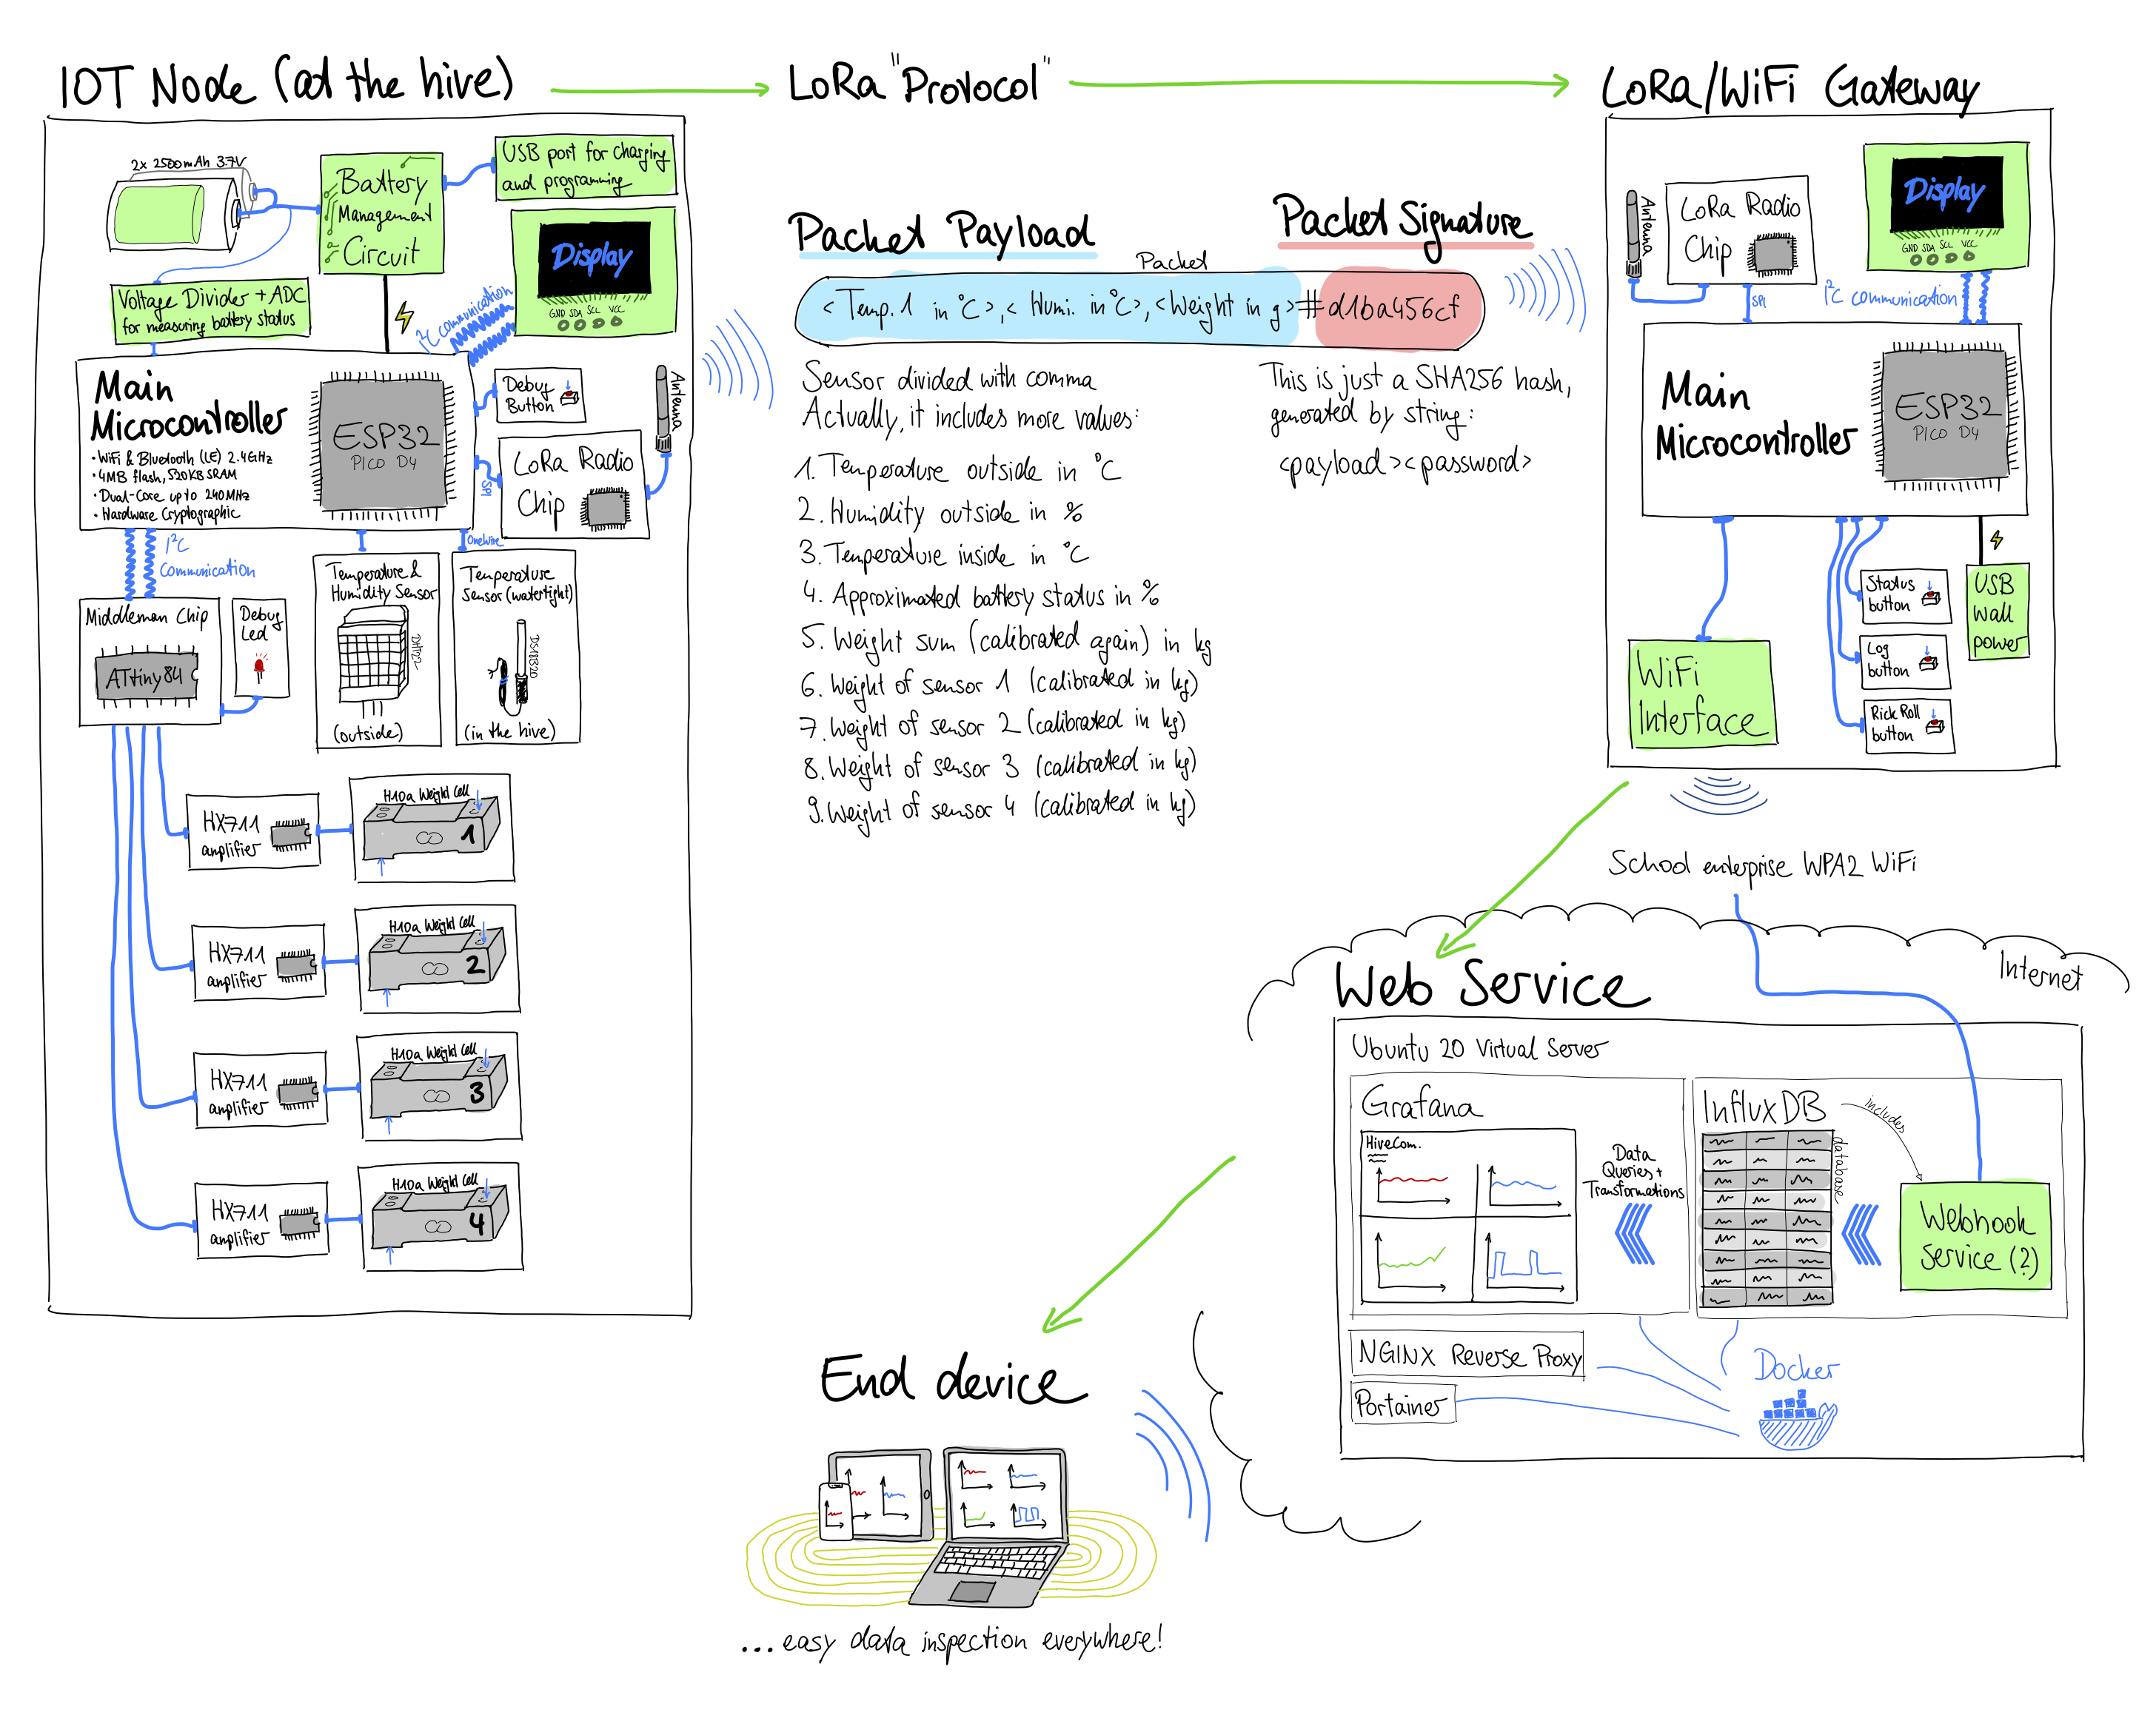 IOT Node (at the hive)
LoRa "Protocol"
LoRa/WiFi Gateway
2x 2500mAh 3.7V
Battery
Management
Circuit
USB port for charging
and programming
Display
GND SDA SCL VCC
I²C communication
Voltage Divider + ADC
for measuring battery status
Main
Microcontroller
• WiFi & Bluetooth (LE) 2.4GHz
• 4MB flash, 520KB SRAM
• Dual-Core up to 240MHz
• Hardware Cryptographic
ESP32
PICO D4
Debug
Button
Antenna
SPI
LoRa Radio
Chip
I²C
Communication
OneWire
Middleman Chip
ATtiny84
Debug
Led
Temperature &
Humidity Sensor
DHT22
(outside)
Temperature
Sensor (watertight)
DS18B20
(in the hive)
HX711
amplifier
H10a Weight Cell
1
HX711
amplifier
H10a Weight Cell
2
HX711
amplifier
H10a Weight Cell
3
HX711
amplifier
H10a Weight Cell
4
Packet Payload
Packet Signature
Packet
<Temp.1 in °C>,< Humi. in °C>,<Weight in g>#d1ba456cf
Sensor divided with comma
Actually, it includes more values:
1. Temperature outside in °C
2. Humidity outside in %
3. Temperature inside in °C
4. Approximated battery status in %
5. Weight sum (calibrated again) in kg
6. Weight of sensor 1 (calibrated in kg)
7. Weight of sensor 2 (calibrated in kg)
8. Weight of sensor 3 (calibrated in kg)
9. Weight of sensor 4 (calibrated in kg)
This is just a SHA256 hash,
generated by string:
<payload><password>
Antenna
LoRa Radio
Chip
SPI
Display
GND SDA SCL VCC
I²C communication
Main
Microcontroller
ESP32
PICO D4
WiFi
Interface
Status
button
Log
button
Rick Roll
button
USB
wall
power
School enterprise WPA2 WiFi
Internet
Web Service
Ubuntu 20 Virtual Server
Grafana
HiveCom.
Data
Queries +
Transformations
InfluxDB
database
includes
Webhook
Service (?)
NGINX Reverse Proxy
Portainer
Docker
End device
...easy data inspection everywhere!